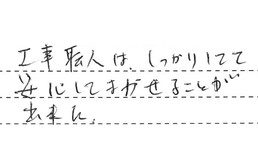 工事職人は、しっかりしてて
安心してまかせることが
出来た。